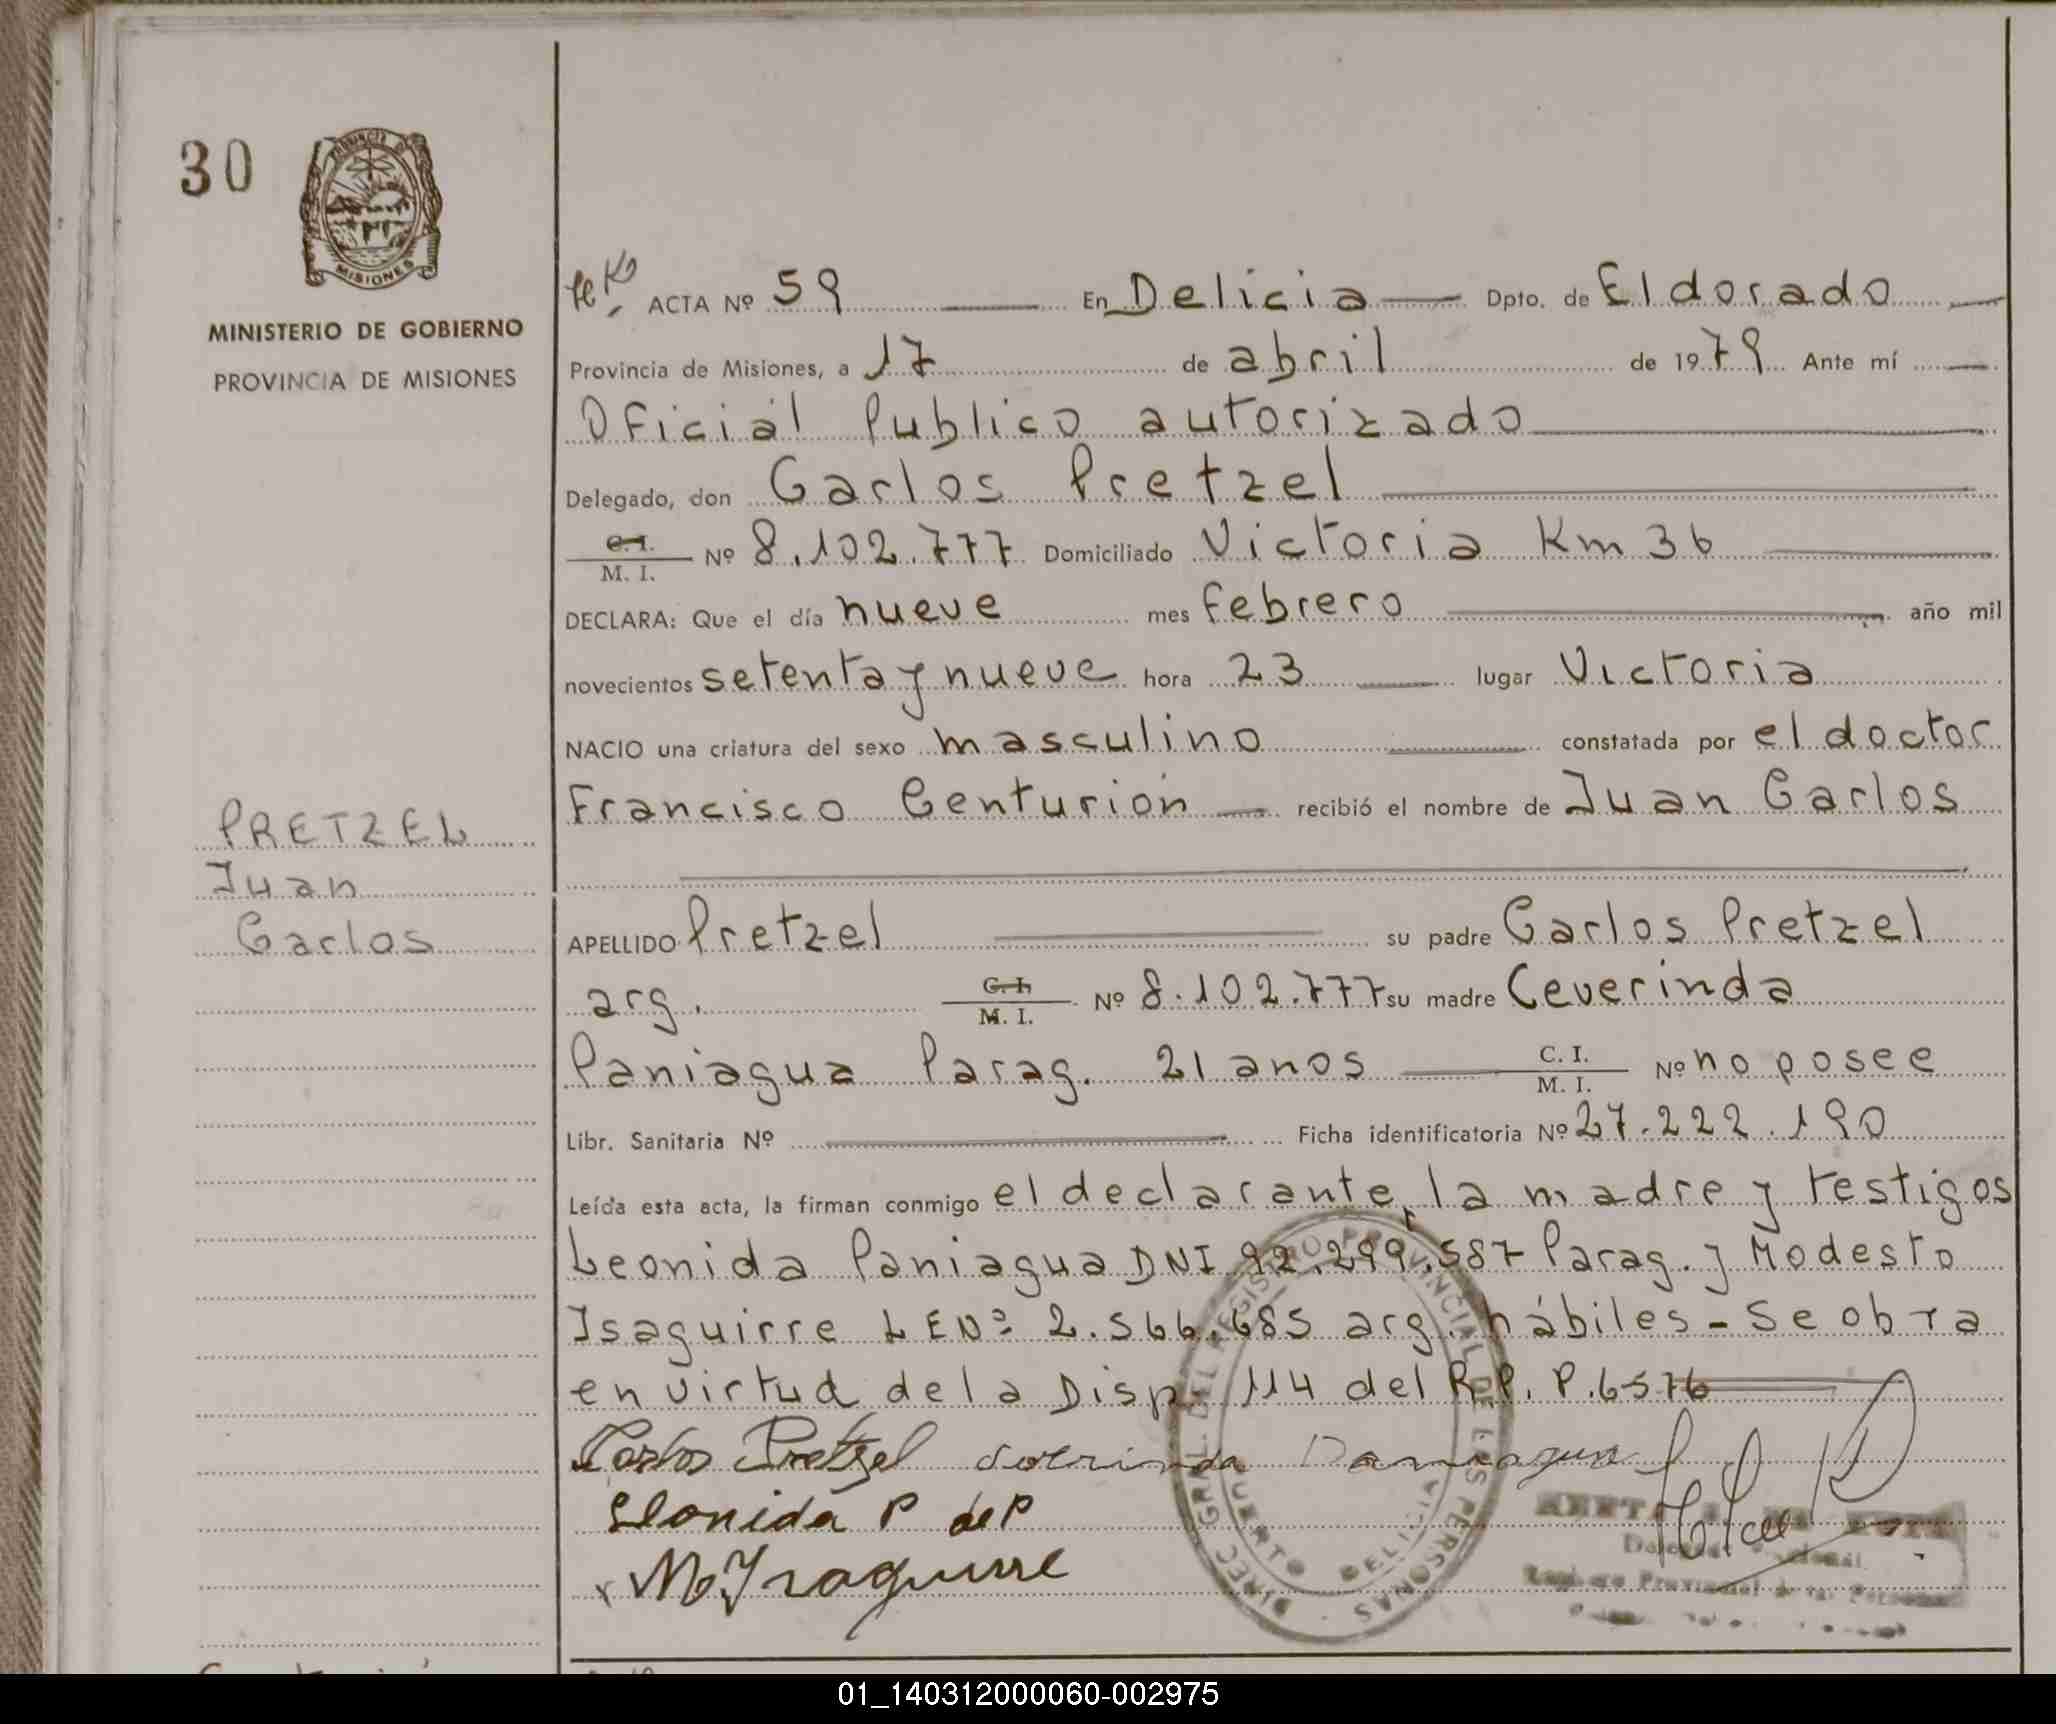 30
PROVINCIA D
MISIONES
MINISTERIO DE GOBIERNO
PROVINCIA DE MISIONES
PRETZEL
Juan
Carlos
ACTA Nº 59 En Delicia Dpto. de Eldorado
Provincia de Misiones, a 17 de abril de 1979 Ante mí
Oficial Publico autorizado
Delegado, don Carlos Pretzel
C. I.
M. I. Nº 8.102.777 Domiciliado Victoria Km 36
DECLARA: Que el día nueve mes febrero año mil
novecientos setenta y nueve hora 23 lugar Victoria
NACIO una criatura del sexo masculino constatada por el doctor
Francisco Centurión recibió el nombre de Juan Carlos
APELLIDO Pretzel su padre Carlos Pretzel
arg. C. I.
M. I. Nº 8.102.777 su madre Ceverinda
Paniagua Parag. 21 anos C. I.
M. I. Nº no posee
Libr. Sanitaria Nº Ficha identificatoria Nº 27.222.190
Leída esta acta, la firman conmigo el declarante, la madre y testigos
Leonida Paniagua DNI 92.299.587 Parag. y Modesto
Isaguirre LENº 2.566.685 arg. hábiles - Se obra
en virtud de la Disp. 114 del R.P. P. 6-5-76
Carlos Pretzel
Elonida P de P
M. Ysaguirre
DIREC. GRAL. DEL REGISTRO PROVINCIAL DE LAS PERSONAS
PUERTO DELICIA
01_140312000060-002975